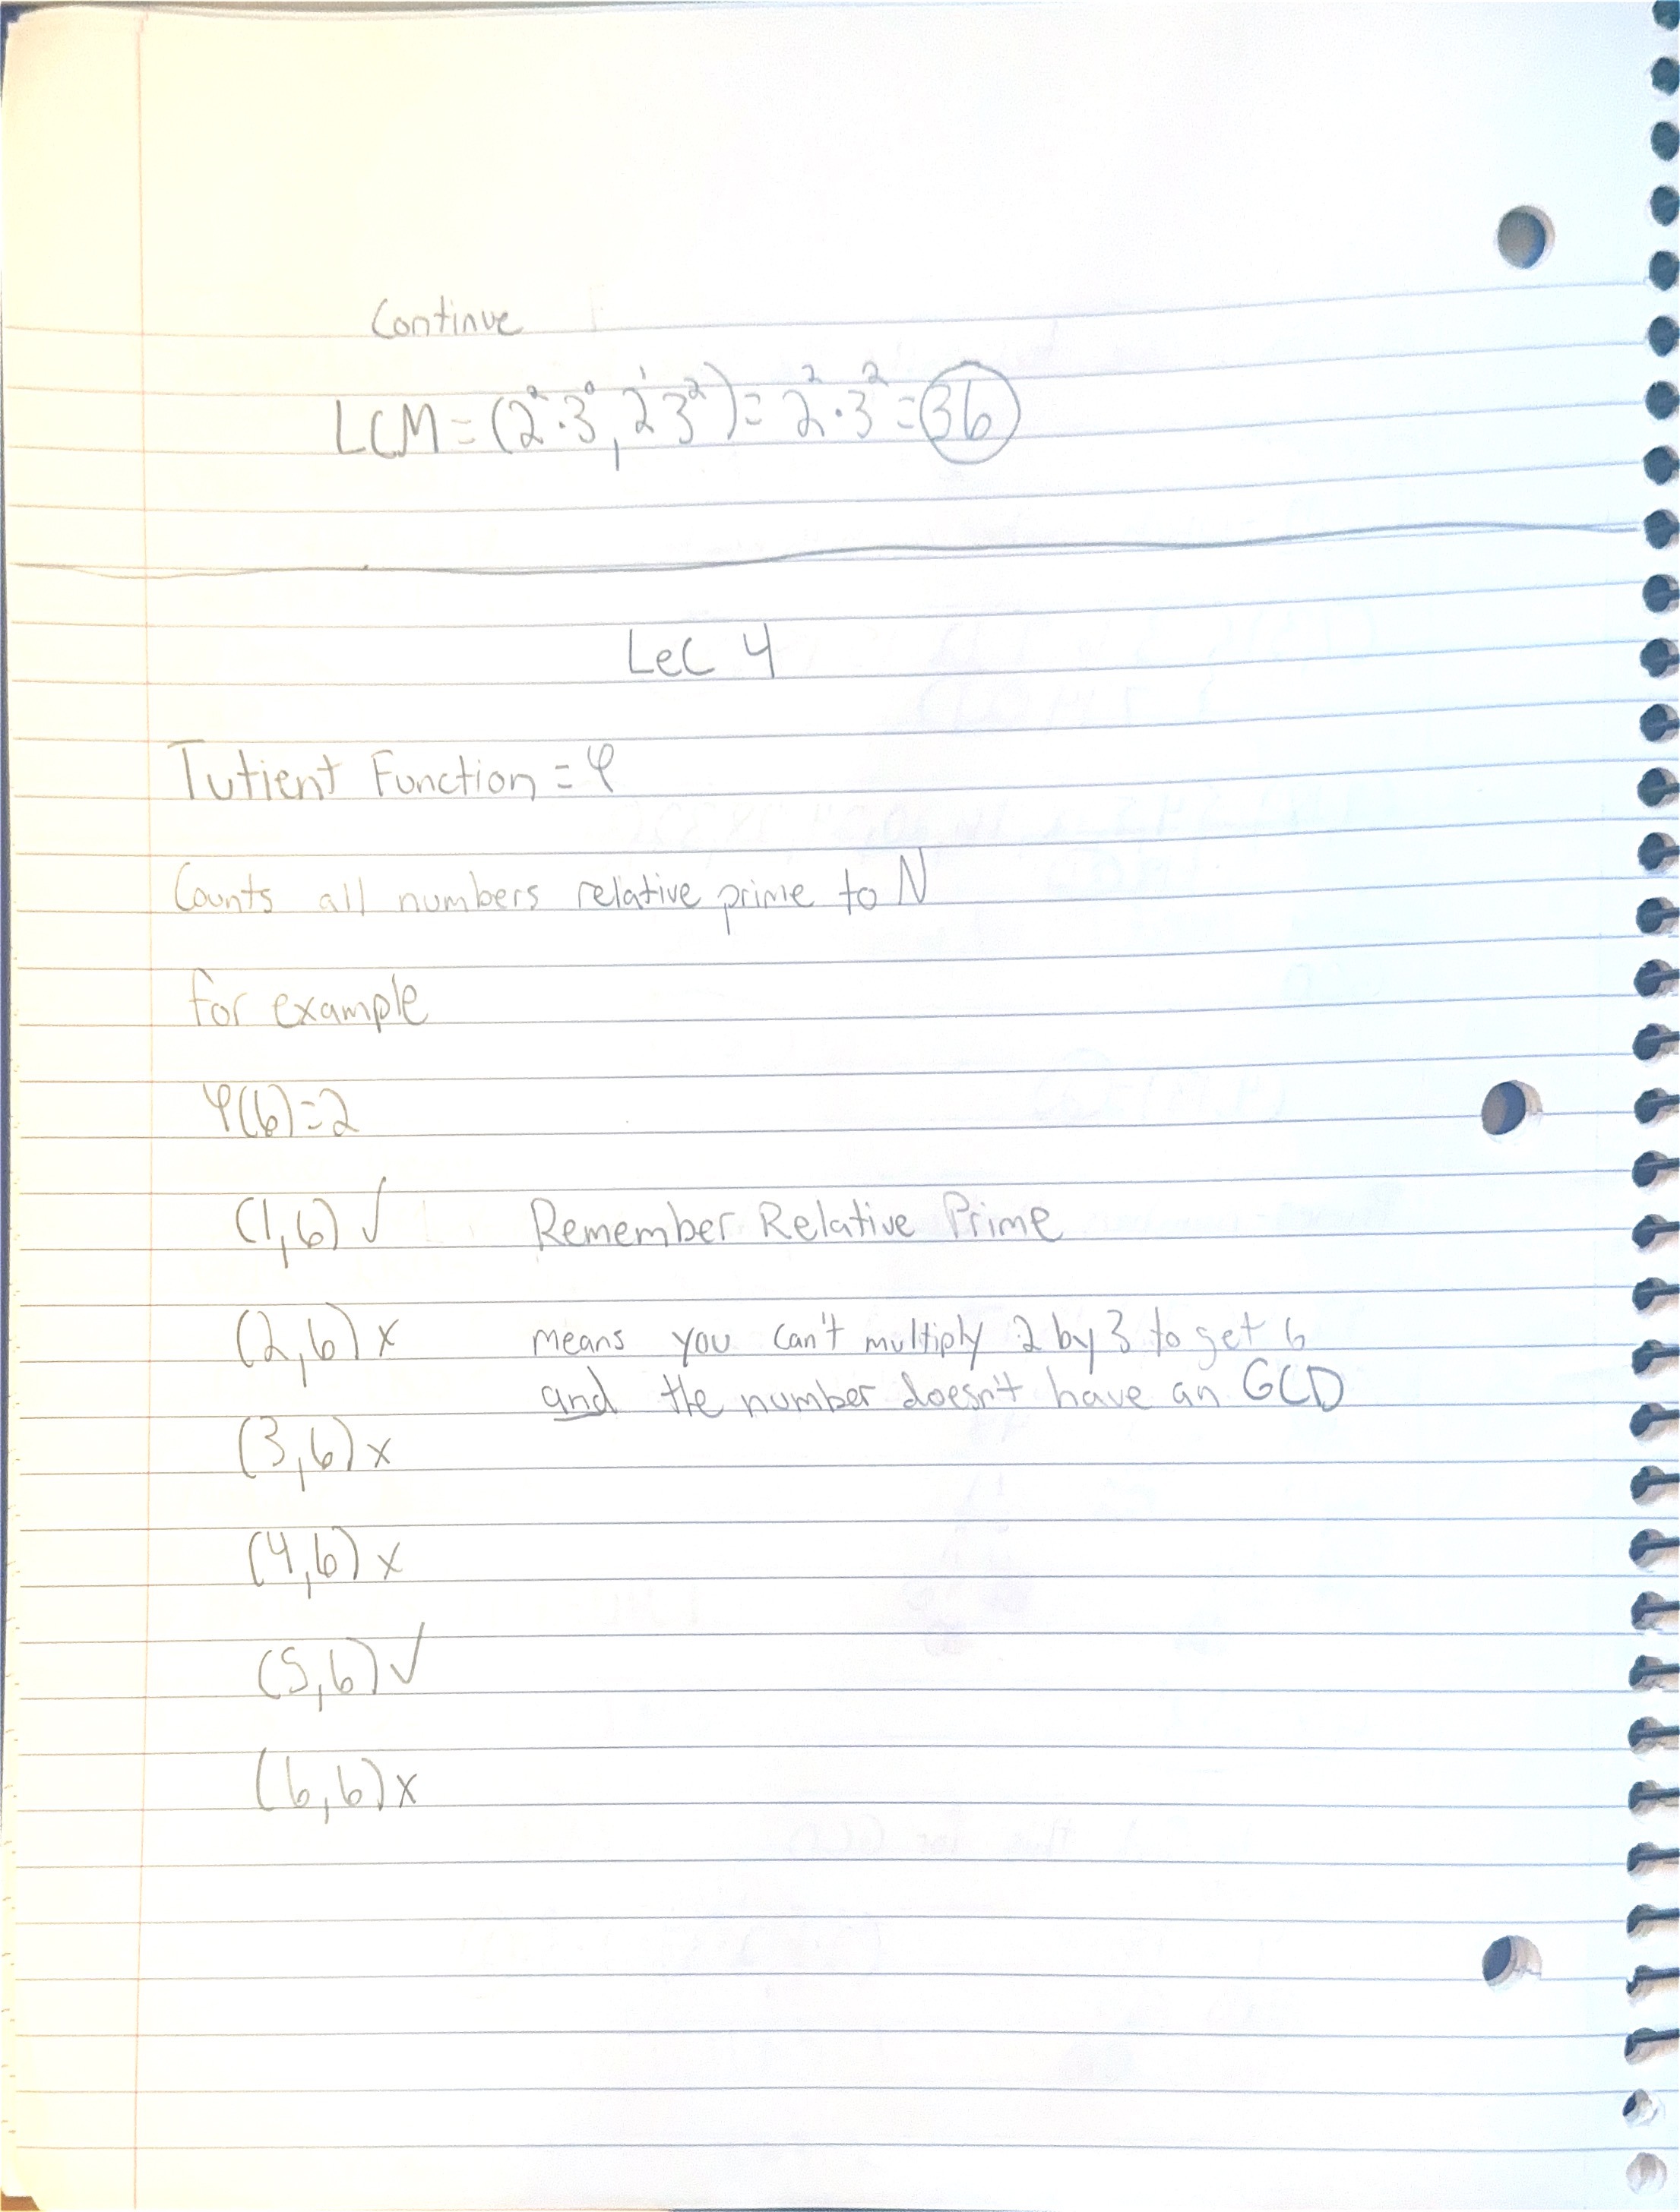 Continue
LCM = (2²·3⁰, 2¹3²) = 2²·3² = 36
Lec 4
Tutient Function = φ
Counts all numbers relative prime to N
for example
φ(6)=2
(1,6) ✓ Remember Relative Prime
(2,6) x means you can't multiply 2 by 3 to get 6
and the number doesn't have an GCD
(3,6) x
(4,6) x
(5,6) ✓
(6,6) x